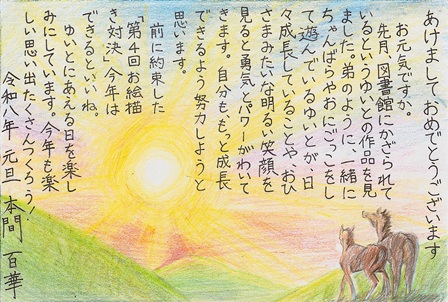 あけましておめでとうございます
お元気ですか。
先月、図書館にかざられて
いるというゆいとの作品を見
ました。弟のように、一緒に
ちゃんばらやおにごっこをし
て遊んでいるゆいとが、日
々成長していることや、おひ
さまみたいな明るい笑顔を
見ると勇気とパワーがわいて
きます。自分も、もっと成長
できるよう努力しようと
思います。
前に約束した
「第4回お絵描
き対決」今年は
できるといいね。
ゆいとにあえる日を楽し
みにしています。今年も楽
しい思い出たくさんつくろう!
令和八年 元旦 本間 百華